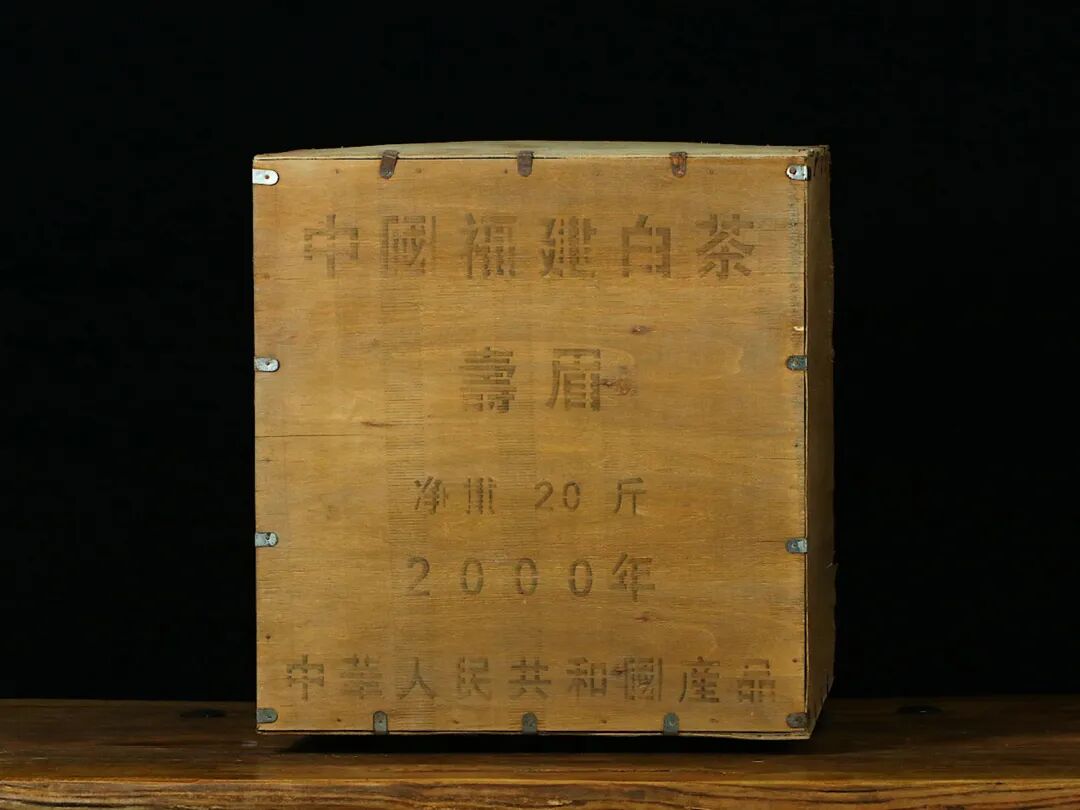 中國福建白茶
壽眉
净重 20 斤
2000年
中華人民共和國產品